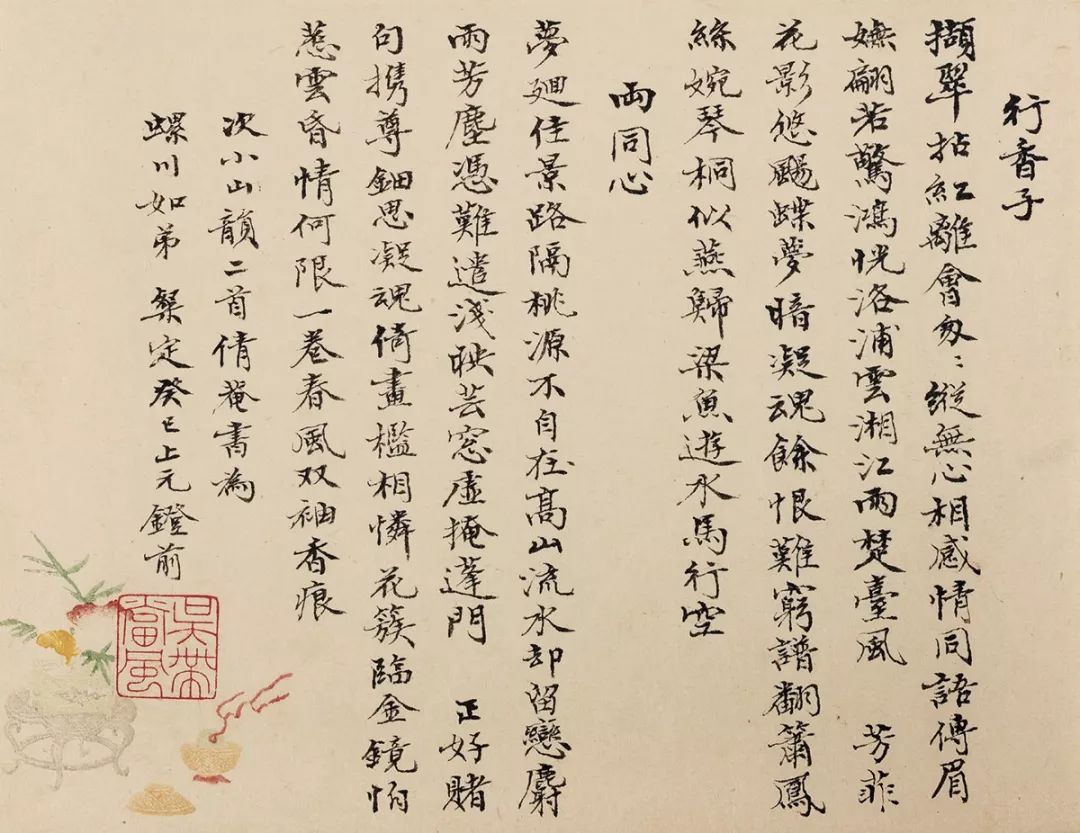 行香子
擷翠拈紅離會匆〻縱無心相感情同語傳眉
嫵翩若驚鴻恍洛浦雲湘江雨楚臺風 芳菲
花影悠颺蝶夢暗凝魂餘恨難窮譜翻簫鳳
絲婉琴桐似燕歸梁魚遊水馬行空
兩同心
夢廻佳景路隔桃源不自在高山流水却留戀麝
雨芳塵憑難遣淺映芸窓虛掩蓬門 正好賭
句携尊鈿思凝魂倚畫檻相憐花簇臨金鏡怕
惹雲昏情何限一卷春風双袖香痕
次小山韻二首倩菴書為
螺川如弟 粲定癸巳上元鐙前
吳帶當風